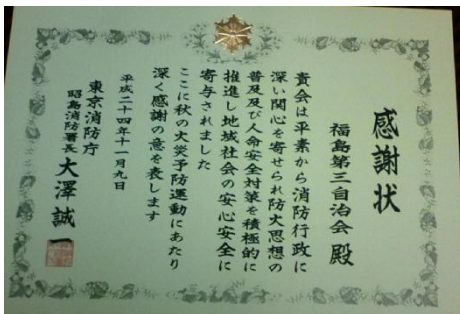 感謝状
福島第三自治会 殿
貴会は平素から消防行政に
深い関心を寄せられ防火思想の
普及及び人命安全対策を積極的に
推進し地域社会の安心安全に
寄与されました
ここに秋の火災予防運動にあたり
深く感謝の意を表します
平成二十四年十一月九日
東京消防庁
昭島消防署長 大澤誠一